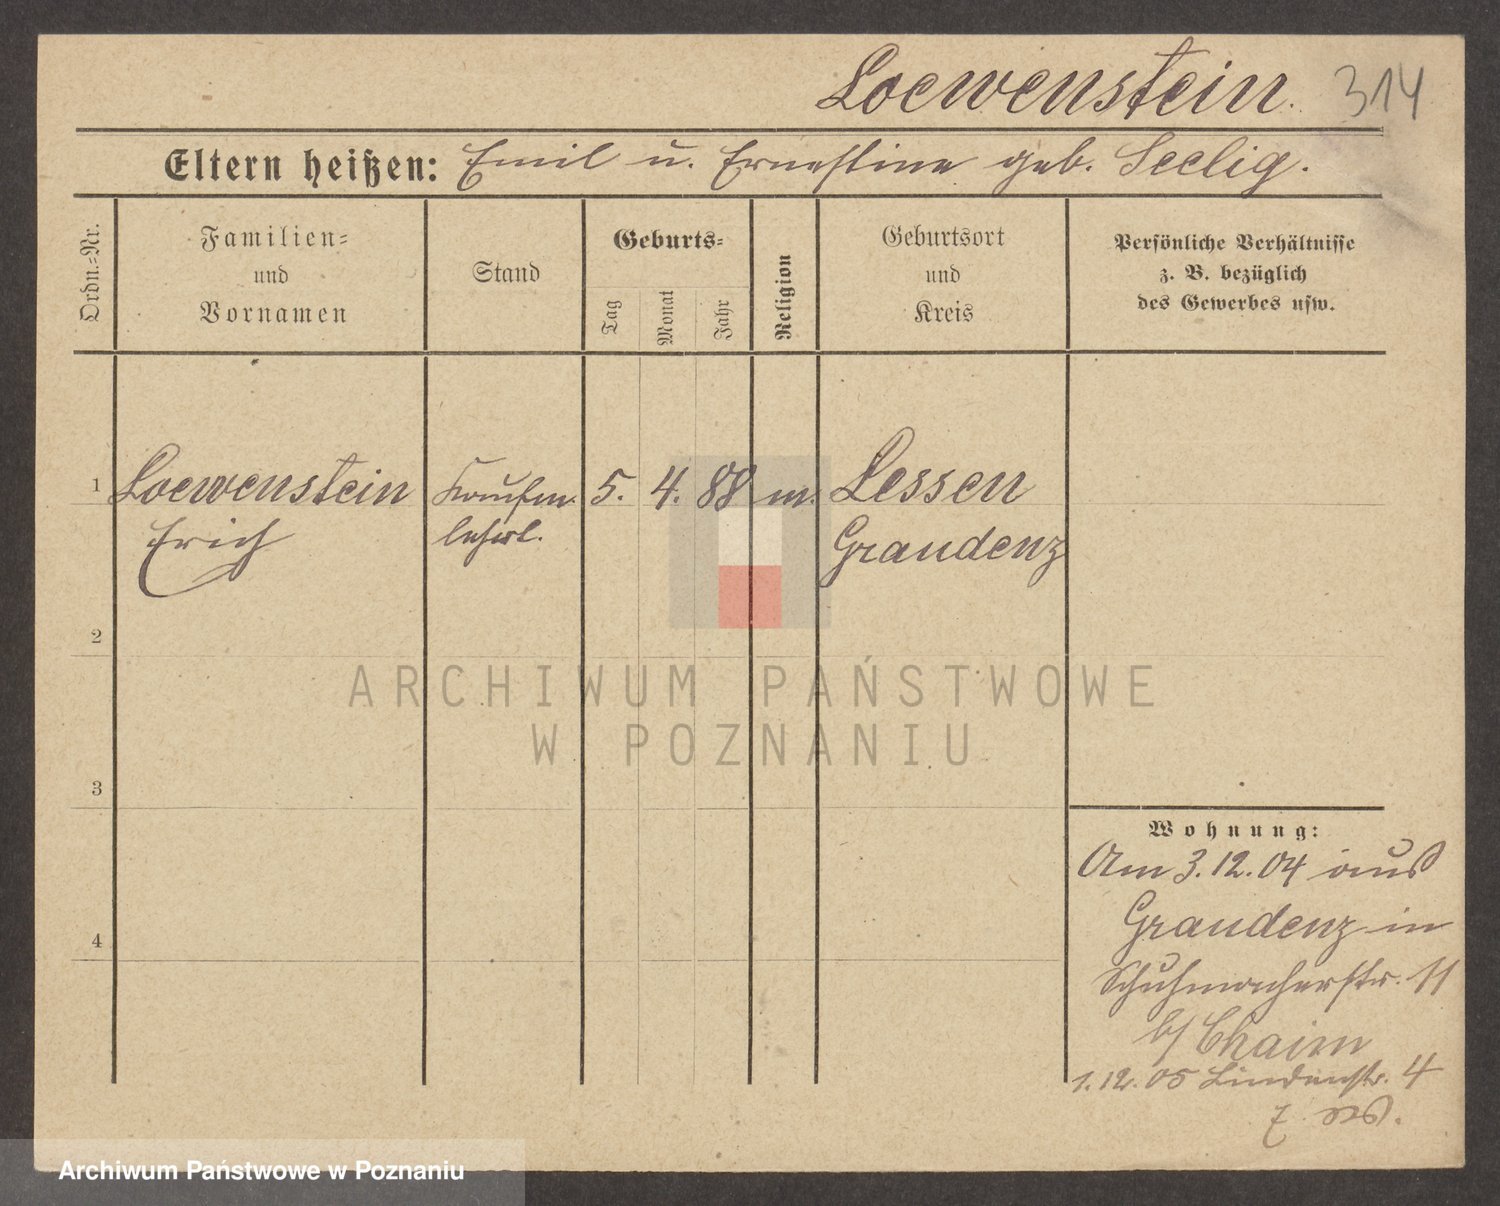 Loewenstein. 314
Eltern heißen: Emil u. Ernestine geb. Seelig.
Ordn.-Nr.
Familien-
und
Vornamen
Stand
Geburts-
Tag
Monat
Jahr
Religion
Geburtsort
und
Kreis
Persönliche Verhältnisse
z. B. bezüglich
des Gewerbes usw.
1 Loewenstein Kaufm. 5. 4. 88 m. Lessen
Erich lehrl. Graudenz
2
3
4
ARCHIWUM PAŃSTWOWE
W POZNANIU
Wohnung:
Am 3.12.04 aus
Graudenz in
Schuhmacherstr. 11
b/ Chaim
1.12.05 Lindenstr. 4
Archiwum Państwowe w Poznaniu